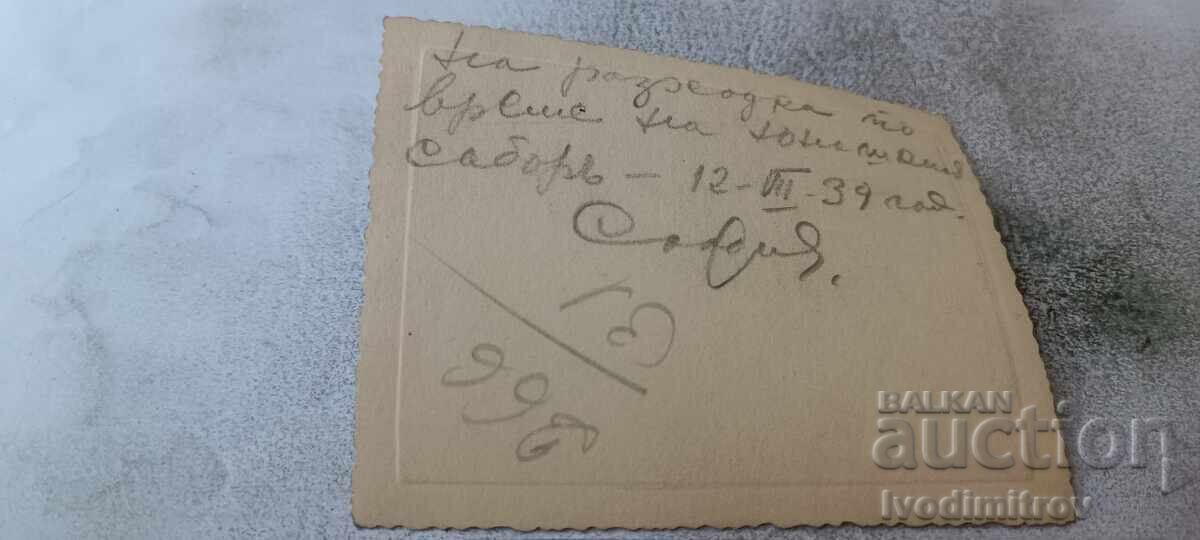 На разходка по
време на юнашкия
саборъ – 12-III-39 год.
София.
BALKAN
auction
Ivodimitrov